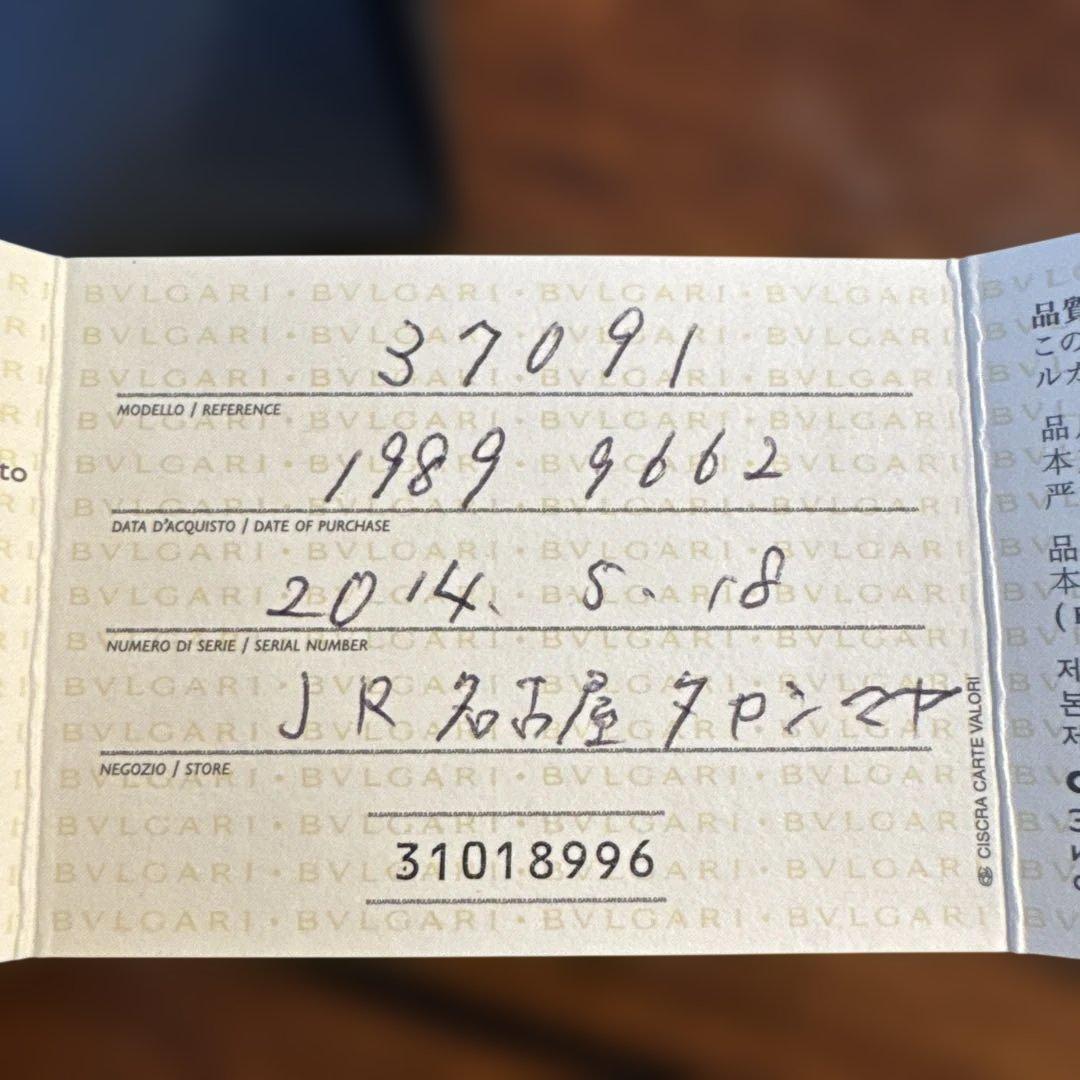 BVLGARI • BVLGARI • BVLGARI • BVLGARI
37091
MODELLO / REFERENCE
1989 9662
DATA D'ACQUISTO / DATE OF PURCHASE
2014. 5. 18
NUMERO DI SERIE / SERIAL NUMBER
JR 名古屋 タカシマヤ
NEGOZIO / STORE
31018996
CISCRA CARTE VALORI
to
品質
この
ルガ
品
本
严
品
本
제
본
제